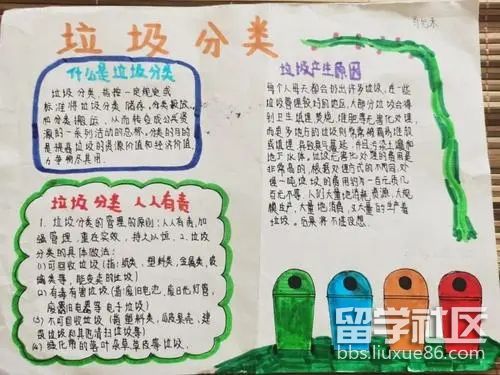 垃圾分类
什么是垃圾分类
垃圾分类,指按一定规定或
标准将垃圾分类储存、分类投放
和分类搬运,从而转变成公共资
源的一系列活动的总称,分类的目的
是提高垃圾的资源价值和经济价值,
力争物尽其用。
垃圾分类 人人有责
1、垃圾分类的管理的原则:人人有责,加
强管理,重在实效,持之以恒。2、垃圾
分类的具体做法:
(1)可回收垃圾(指:纸类、塑料类、金属类、玻
璃类等,能变卖的垃圾)
(2)有毒有害垃圾(指:废旧电池、废旧光灯管、
废旧电器等电子垃圾)
(3)不可回收垃圾(指:塑料类、瓜皮果壳、建
(4)绿化带的落叶杂草草皮等垃圾。
垃圾产生原因
每个人每天都会扔出许多垃圾,在一些
垃圾管理较好的地区,大部分垃圾会得
到卫生填埋、焚烧、堆肥等无害化处理,
而更多地方的垃圾则常常被简易堆放
或填埋,导致臭气蔓延,并且污染土壤和
地下水体。垃圾无害化处理的费用是
非常高的,根据处理方式的不同,处
理一吨垃圾的费用约为一百元至几
百元不等,人们大量地消耗资源,大规
模生产,大量地消费,又大量的生产着
垃圾。后果将不堪设想。
留学社区
bbs.liuxue86.com